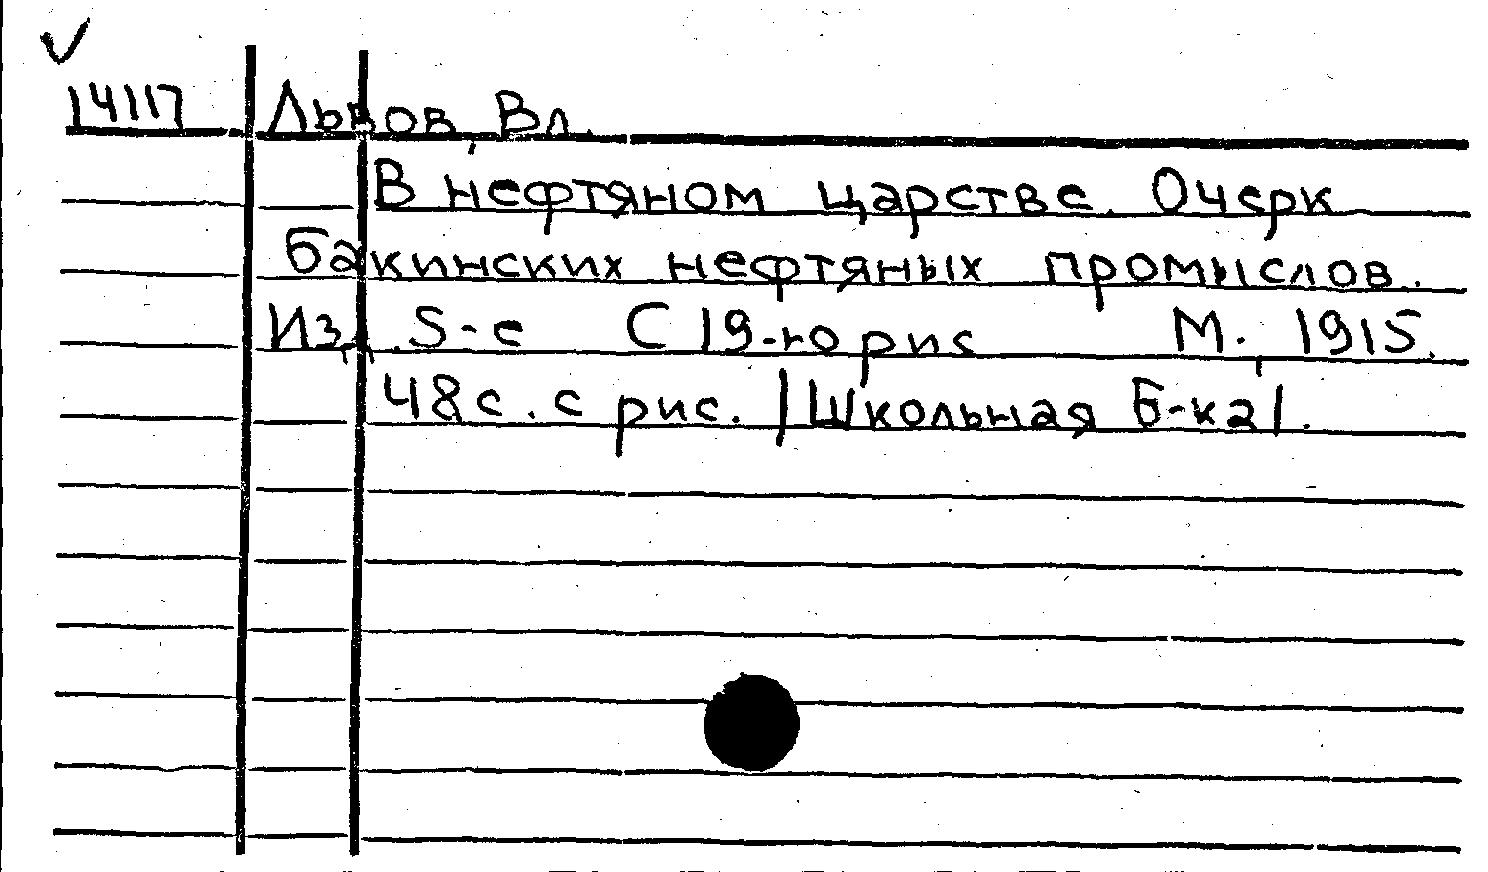 14117 Львов, Вл.
В нефтяном царстве. Очерк
бакинских нефтяных промыслов.
Изд. 5-е С 19-ю рис М., 1915.
48 с. с рис. |Школьная б-ка|.